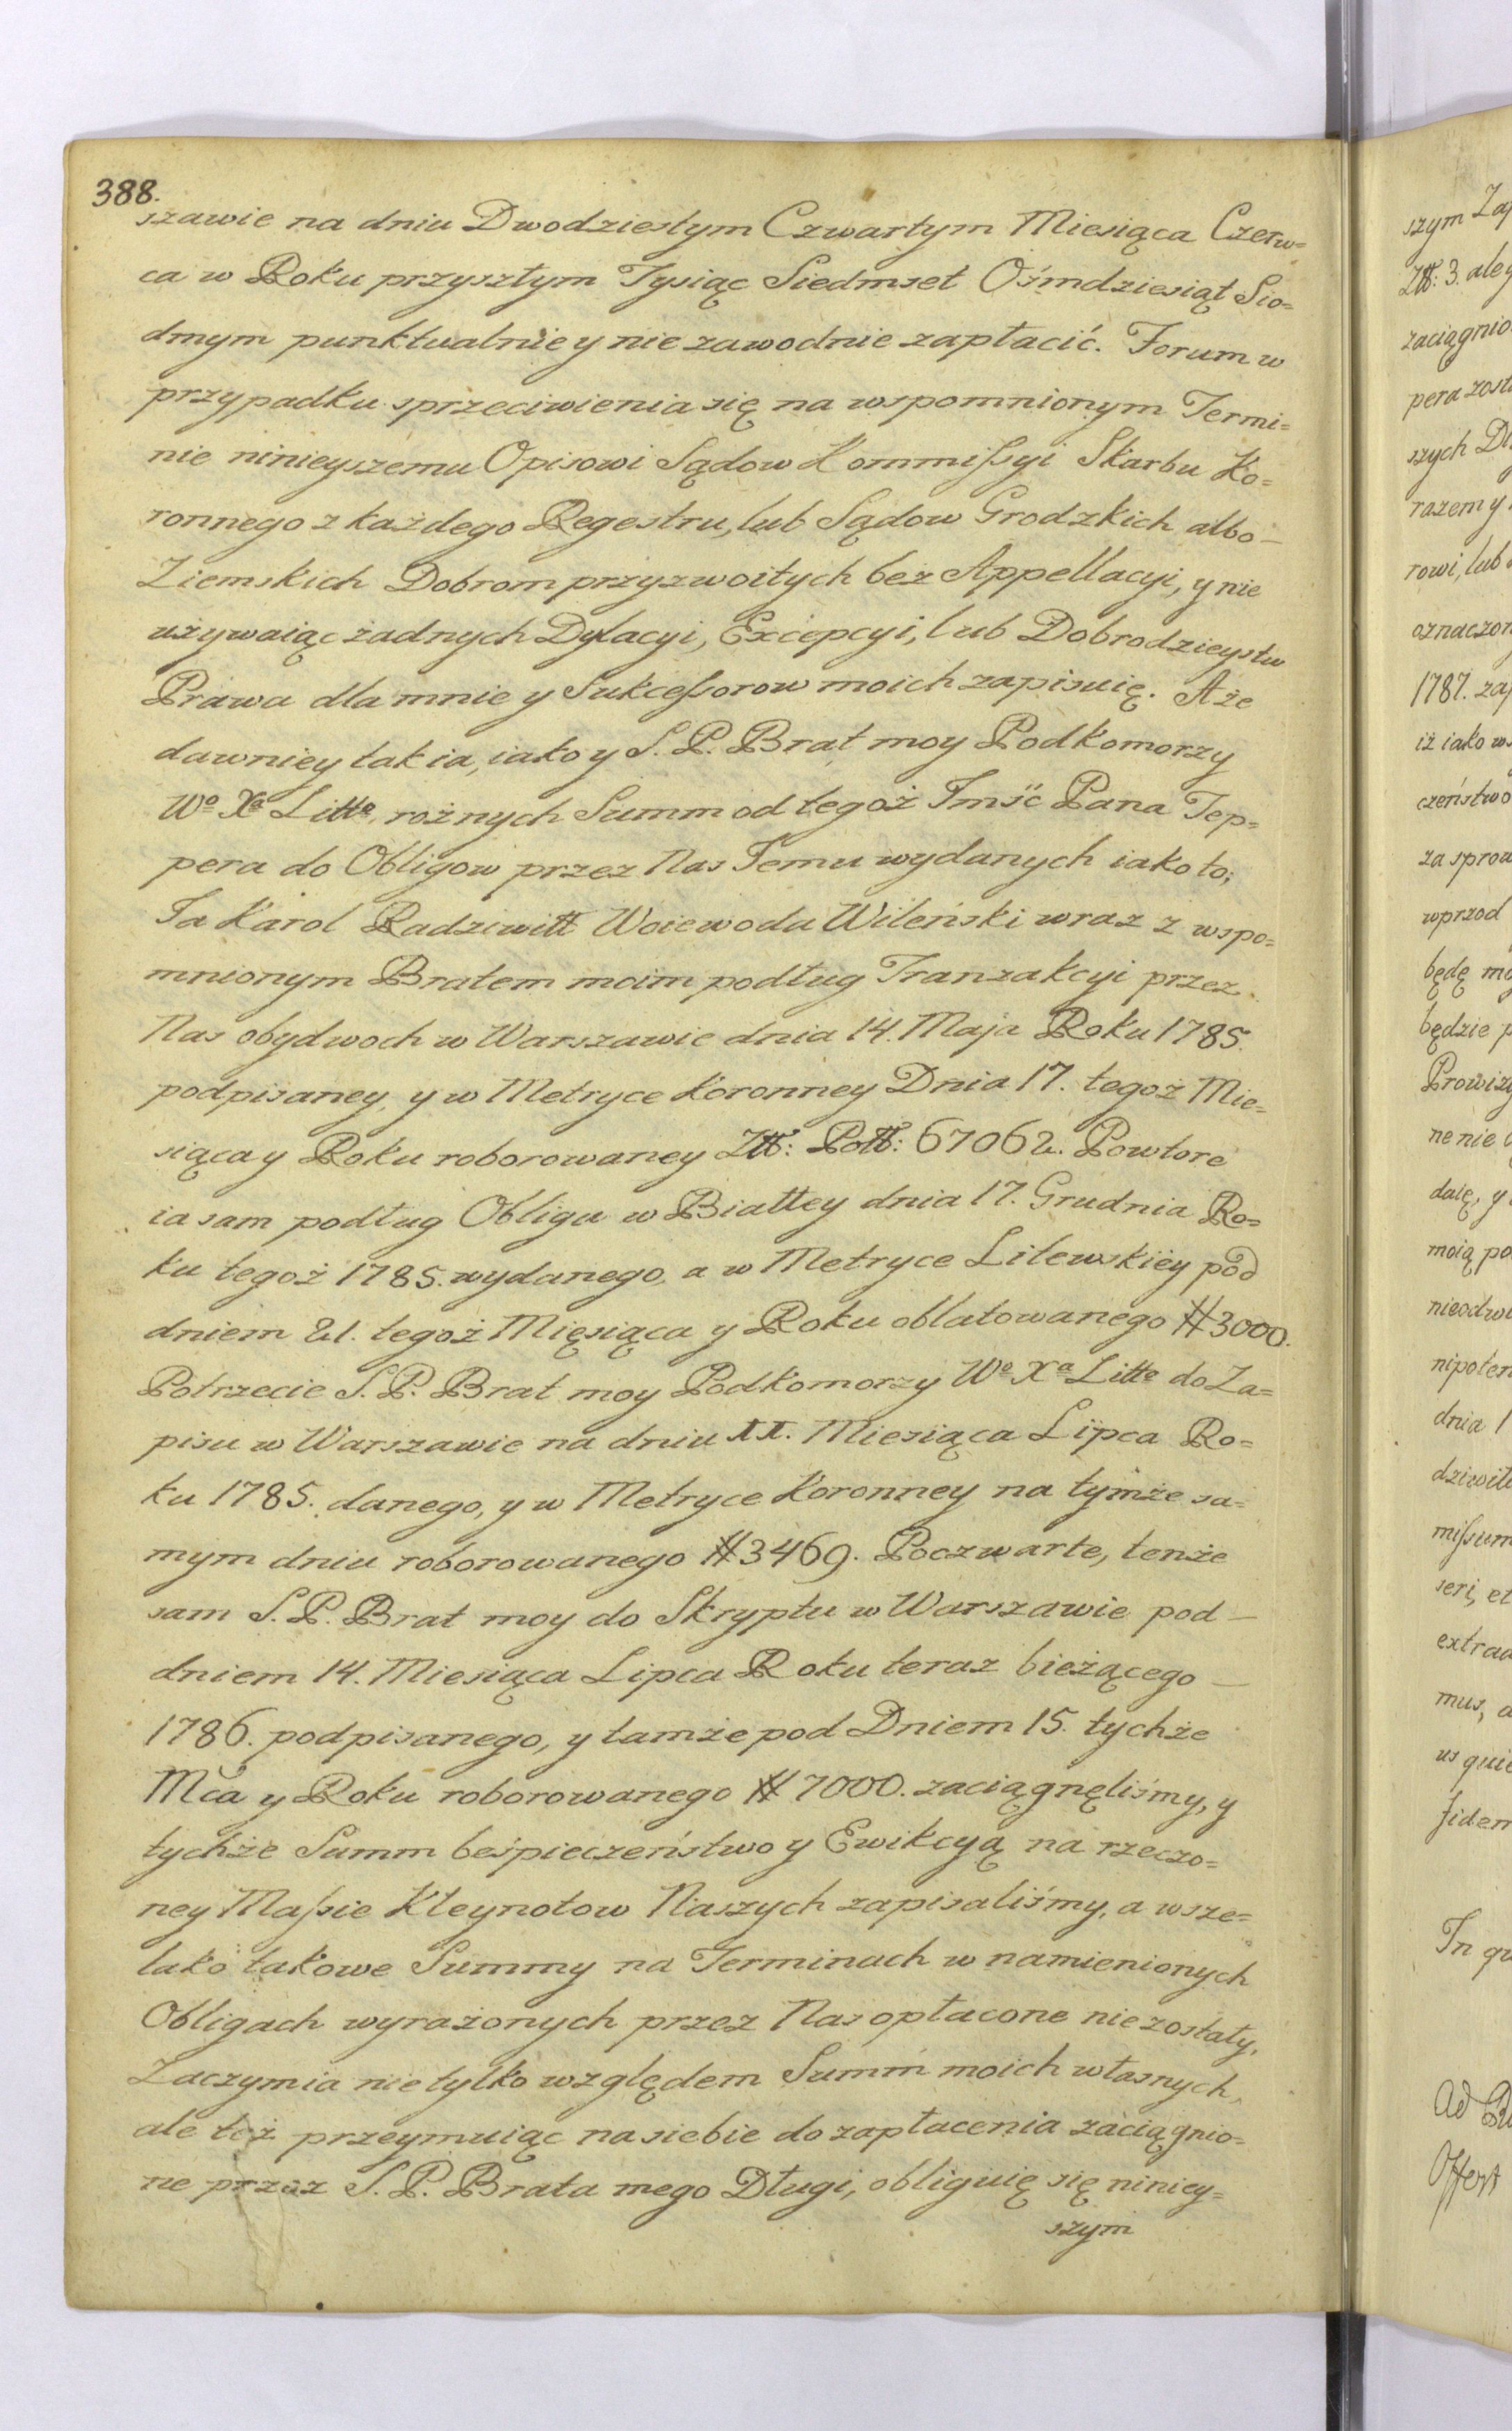 388.
szawie na dniu Dwodziestym Czwartym Miesiąca Czerw=
ca w Roku przyszłym Tysiąc Siedmset Ośmdziesiąt Sio=
dmym punktualnie y nie zawodnie zapłacić. Forum w
przypadku sprzeciwienia się na wspomnionym Termi=
nie ninieyszemu Opisowi Sądow Kommißyi Skarbu Ko=
ronnego z każdego Regestru, lub Sądow Grodzkich albo —
Ziemskich Dobrom przyzwoitych bez Appellacyi, y nie
używaiąc żadnych Dylacyi, Excepcyi, lub Dobrodzieystw
Prawa dla mnie y Sukceßorow moich zapisuię. A że
dawniey tak ia, iako y S. P. Brat moy Podkomorzy
Wº Xª Littº rożnych Summ od tegoż Imść Pana Tep=
pera do Obligow przez Nas Jemu wydanych iako to;
Ja Karol Radziwiłł Woiewoda Wileński wraz z wspo=
mnionym Bratem moim podług Tranzakcyi przez
Nas obydwoch w Warszawie dnia 14. Maja Roku 1785.
podpisaney, y w Metryce Koronney Dnia 17. tegoż Mie=
siąca y Roku roborowaney Złł: Poll: 67062. Powtore
ia sam podług Obligu w Białłey dnia 17. Grudnia Ro=
ku tegoż 1785. wydanego, a w Metryce Litewskiey pod
dniem 21. tegoż Mięsiąca y Roku oblatowanego # 3000.
Potrzecie S. P. Brat moy Podkomorzy Wº Xª Littº do Za=
pisu w Warszawie na dniu XX. Miesiąca Lipca Ro=
ku 1785. danego, y w Metryce Koronney na tymże sa=
mym dniu roborowanego # 3469. Poczwarte, tenże
sam S. P. Brat moy do Skryptu w Warszawie pod —
dniem 14. Miesiąca Lipca Roku teraz bieżącego —
1786. podpisanego, y tamże pod Dniem 15. tychże
Mca y Roku roborowanego # 7000. zaciągnęliśmy, y
tychże Summ beśpieczeństwo y Ewikcyą na rzeczo=
ney Maßie Kleynotow Naszych zapisaliśmy, a wsze=
lako takowe Summy na Terminach w namienionych
Obligach wyrażonych przez Nas opłacone nie zostały,
Zaczym ia nie tylko względem Summ moich własnych,
ale też przeymuiąc na siebie do zapłacenia zaciągnio=
ne przez S. P. Brata mego Długi, obliguię się niniey=
szym
szym Zap
Złł: 3. ale
zaciągnio
pera zost
szych
razem y
rowi, lub
oznaczon
1787. za
iż iako w
czeństwo
za spraw
wprzod
będę mo
będzie p
Prowizy
ne nie
daię, y
moią po
nieodwo
nipoten
dnia 1
dziwiłł
mißum
seri, et
extrad
mus, a
us quie
fidem
In qu
Ad
Offert